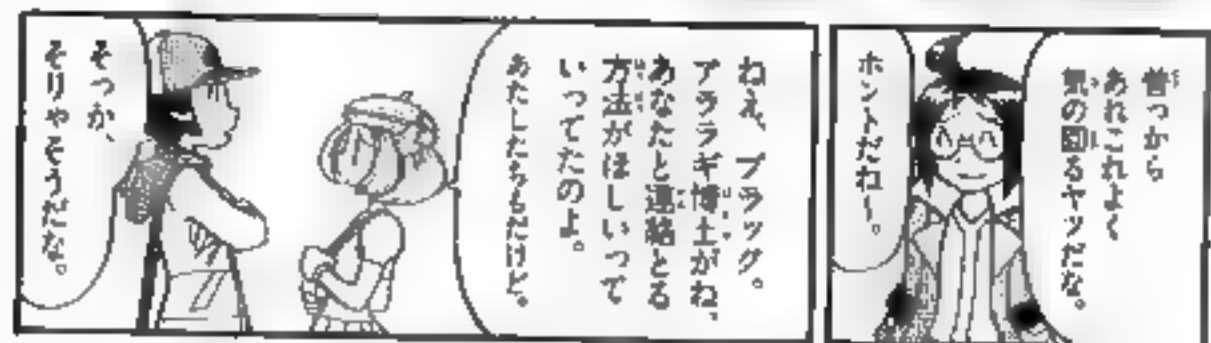 昔っから
あれこれよく
気の回るヤツだな。
ホントだねー。
ねえ、ブラック。
アララギ博士がね、
あなたと連絡とる
方法がほしいって
いってたのよ。
あたしたちもだけど。
そっか、
そりゃそうだな。